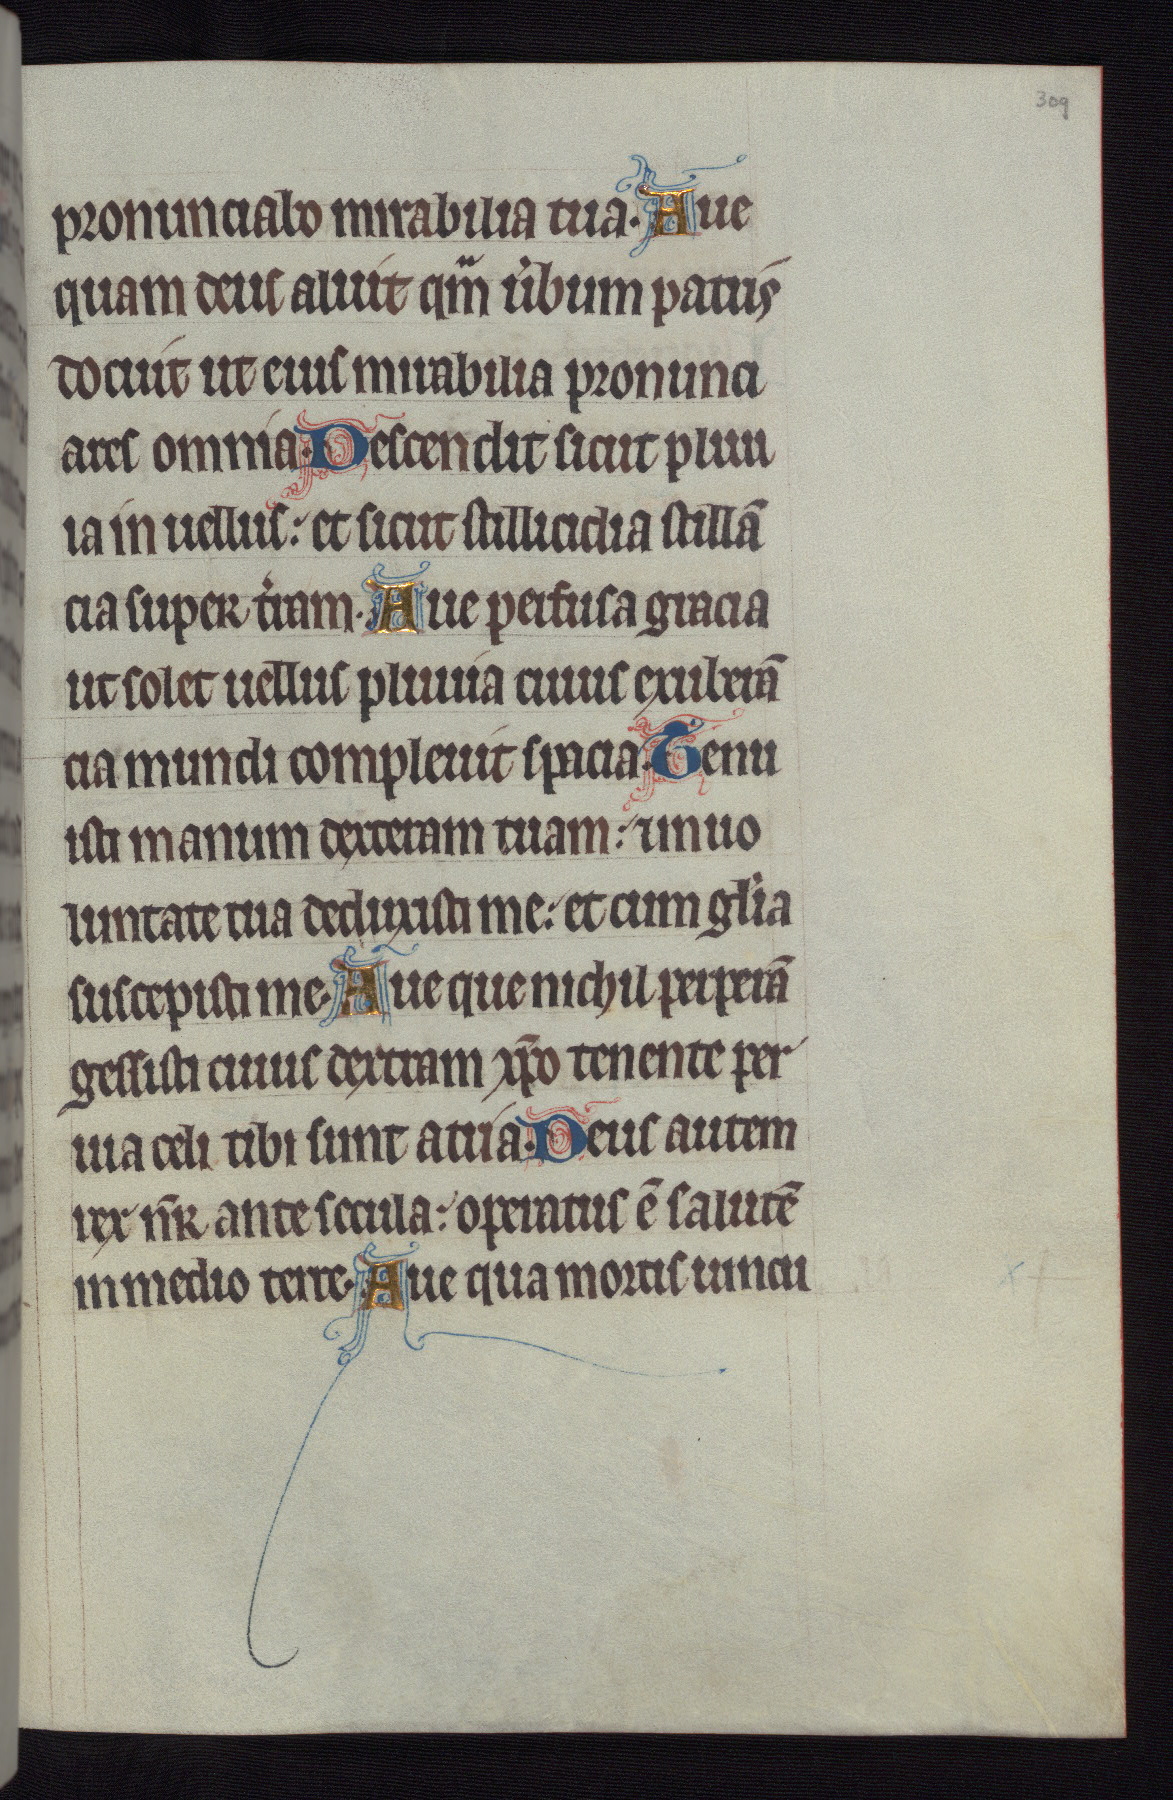 309
pronunciabo mirabilia tua. Aue
quam deus aluit qm̄ u̾bum patris
docuit ut eius mirabilia pronunci
ares omnia. Descendit sicut pluu
ia in uellus: et sicut stillicidia stillā
cia super t̾ram. Aue perfusa gracia
ut solet uellus pluuia cuius exuberā
cia mundi compleuit spacia. Tenu
isti manum dexteram tuam: in uo
luntate tua deduxisti me: et cum gl̾ia
suscepisti me. Aue que nichil perperā
gessisti cuius dextram xp̄o tenente per
uia celi tibi sunt atria. Deus autem
rex nr̄ ante secula: operatus ē salutē
in medio terre. Aue qua mortis uincu